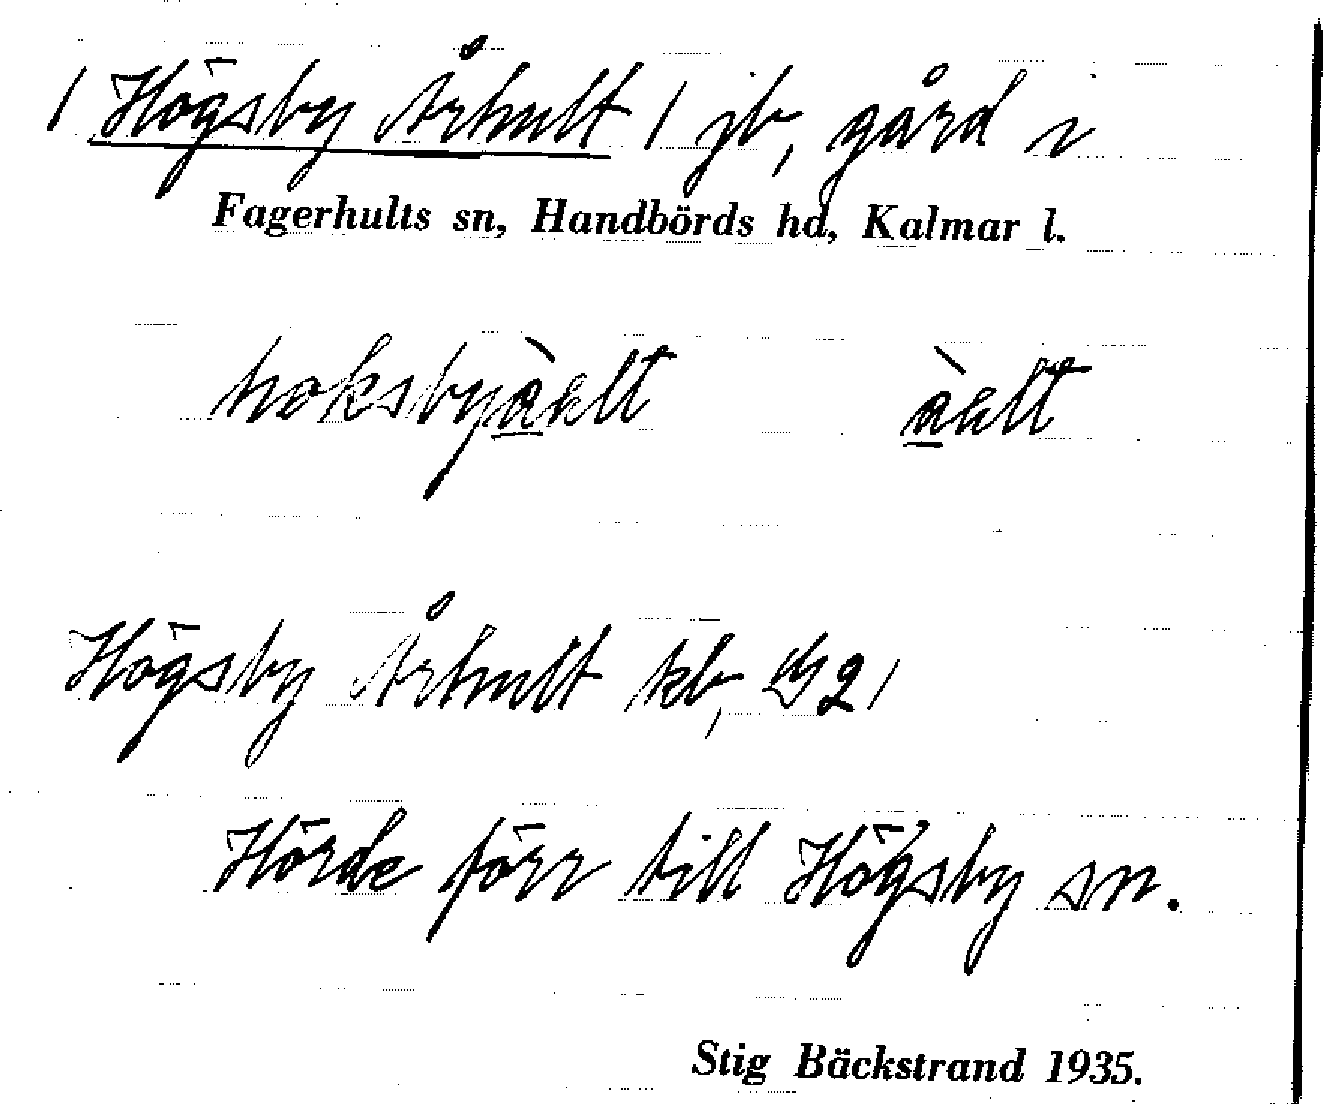 / Högsby Århult / jb, gård i
Fagerhults sn, Handbörds hd, Kalmar l.
Högsby Århult kb, G2/
Hörde förr till Högsby sn.
Stig Bäckstrand 1935.